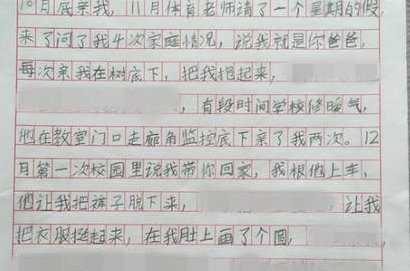 10月底亲我，11月体育老师请了一个星期的假
来了问了我4次家庭情况，说我就是你爸爸，
每次亲我在树底下，把我抱起来，
，有段时间学校修暖气，
他在教室门口走廊角监控底下亲了我两次。12
月第一次校园里说我带你回家，我根他上车，
他让我把裤子脱下来， 让我
把衣服挺起来，在我肚上画了个圆，